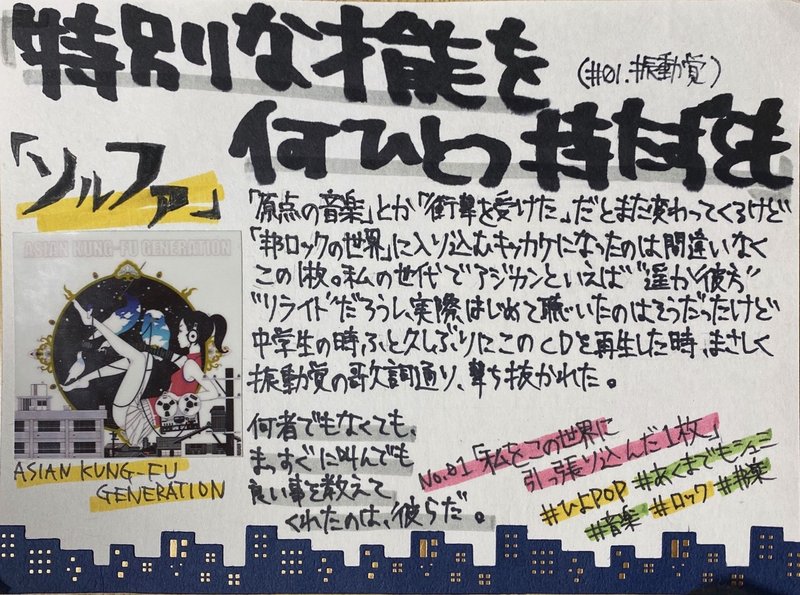 特別な才能を
(#01.振動覚)
何ひとつ持たずとも
「ソルファ」
ASIAN KUNG-FU GENERATION
ASIAN KUNG-FU
GENERATION
「原点の音楽」とか“衝撃を受けた”だとまた変わってくるけど
「邦ロックの世界」に入り込むキッカケになったのは間違いなく
この1枚。私の世代でアジカンといえば“遥か彼方”
“リライト”だろうし、実際はじめて聴いたのはそうだったけど
中学生の時、ふと久しぶりにこのCDを再生した時、まさしく
振動覚の歌詞通り、撃ち抜かれた。
何者でもなくても、
まっすぐに叫んでも
良い事を教えて
くれたのは、彼らだ。
No.01「私をこの世界に
引っ張り込んだ1枚」
#ひよPOP #あくまでもシュニ
#音楽 #ロック #邦楽